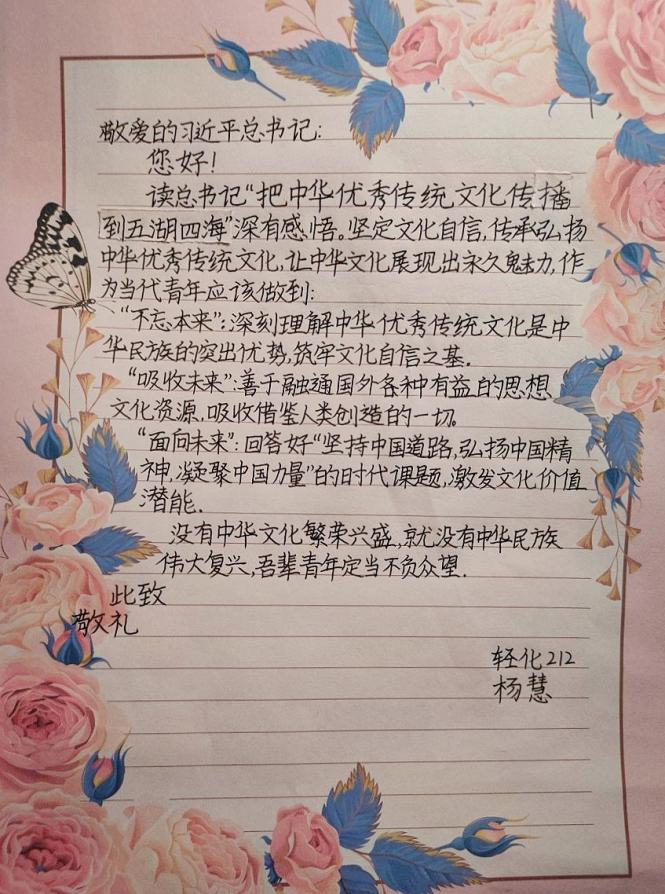 敬爱的习近平总书记:
您好!
读总书记“把中华优秀传统文化传播
到五湖四海”深有感悟。坚定文化自信,传承弘扬
中华优秀传统文化,让中华文化展现出永久魅力,作
为当代青年应该做到:
“不忘本来”:深刻理解中华优秀传统文化是中
华民族的突出优势,筑牢文化自信之基.
“吸收未来”:善于融通国外各种有益的思想
文化资源,吸收借鉴人类创造的一切。
“面向未来”:回答好“坚持中国道路,弘扬中国精
神,凝聚中国力量”的时代课题,激发文化价值
潜能.
没有中华文化繁荣兴盛,就没有中华民族
伟大复兴,吾辈青年定当不负众望.
此致
敬礼
轻化212
杨慧